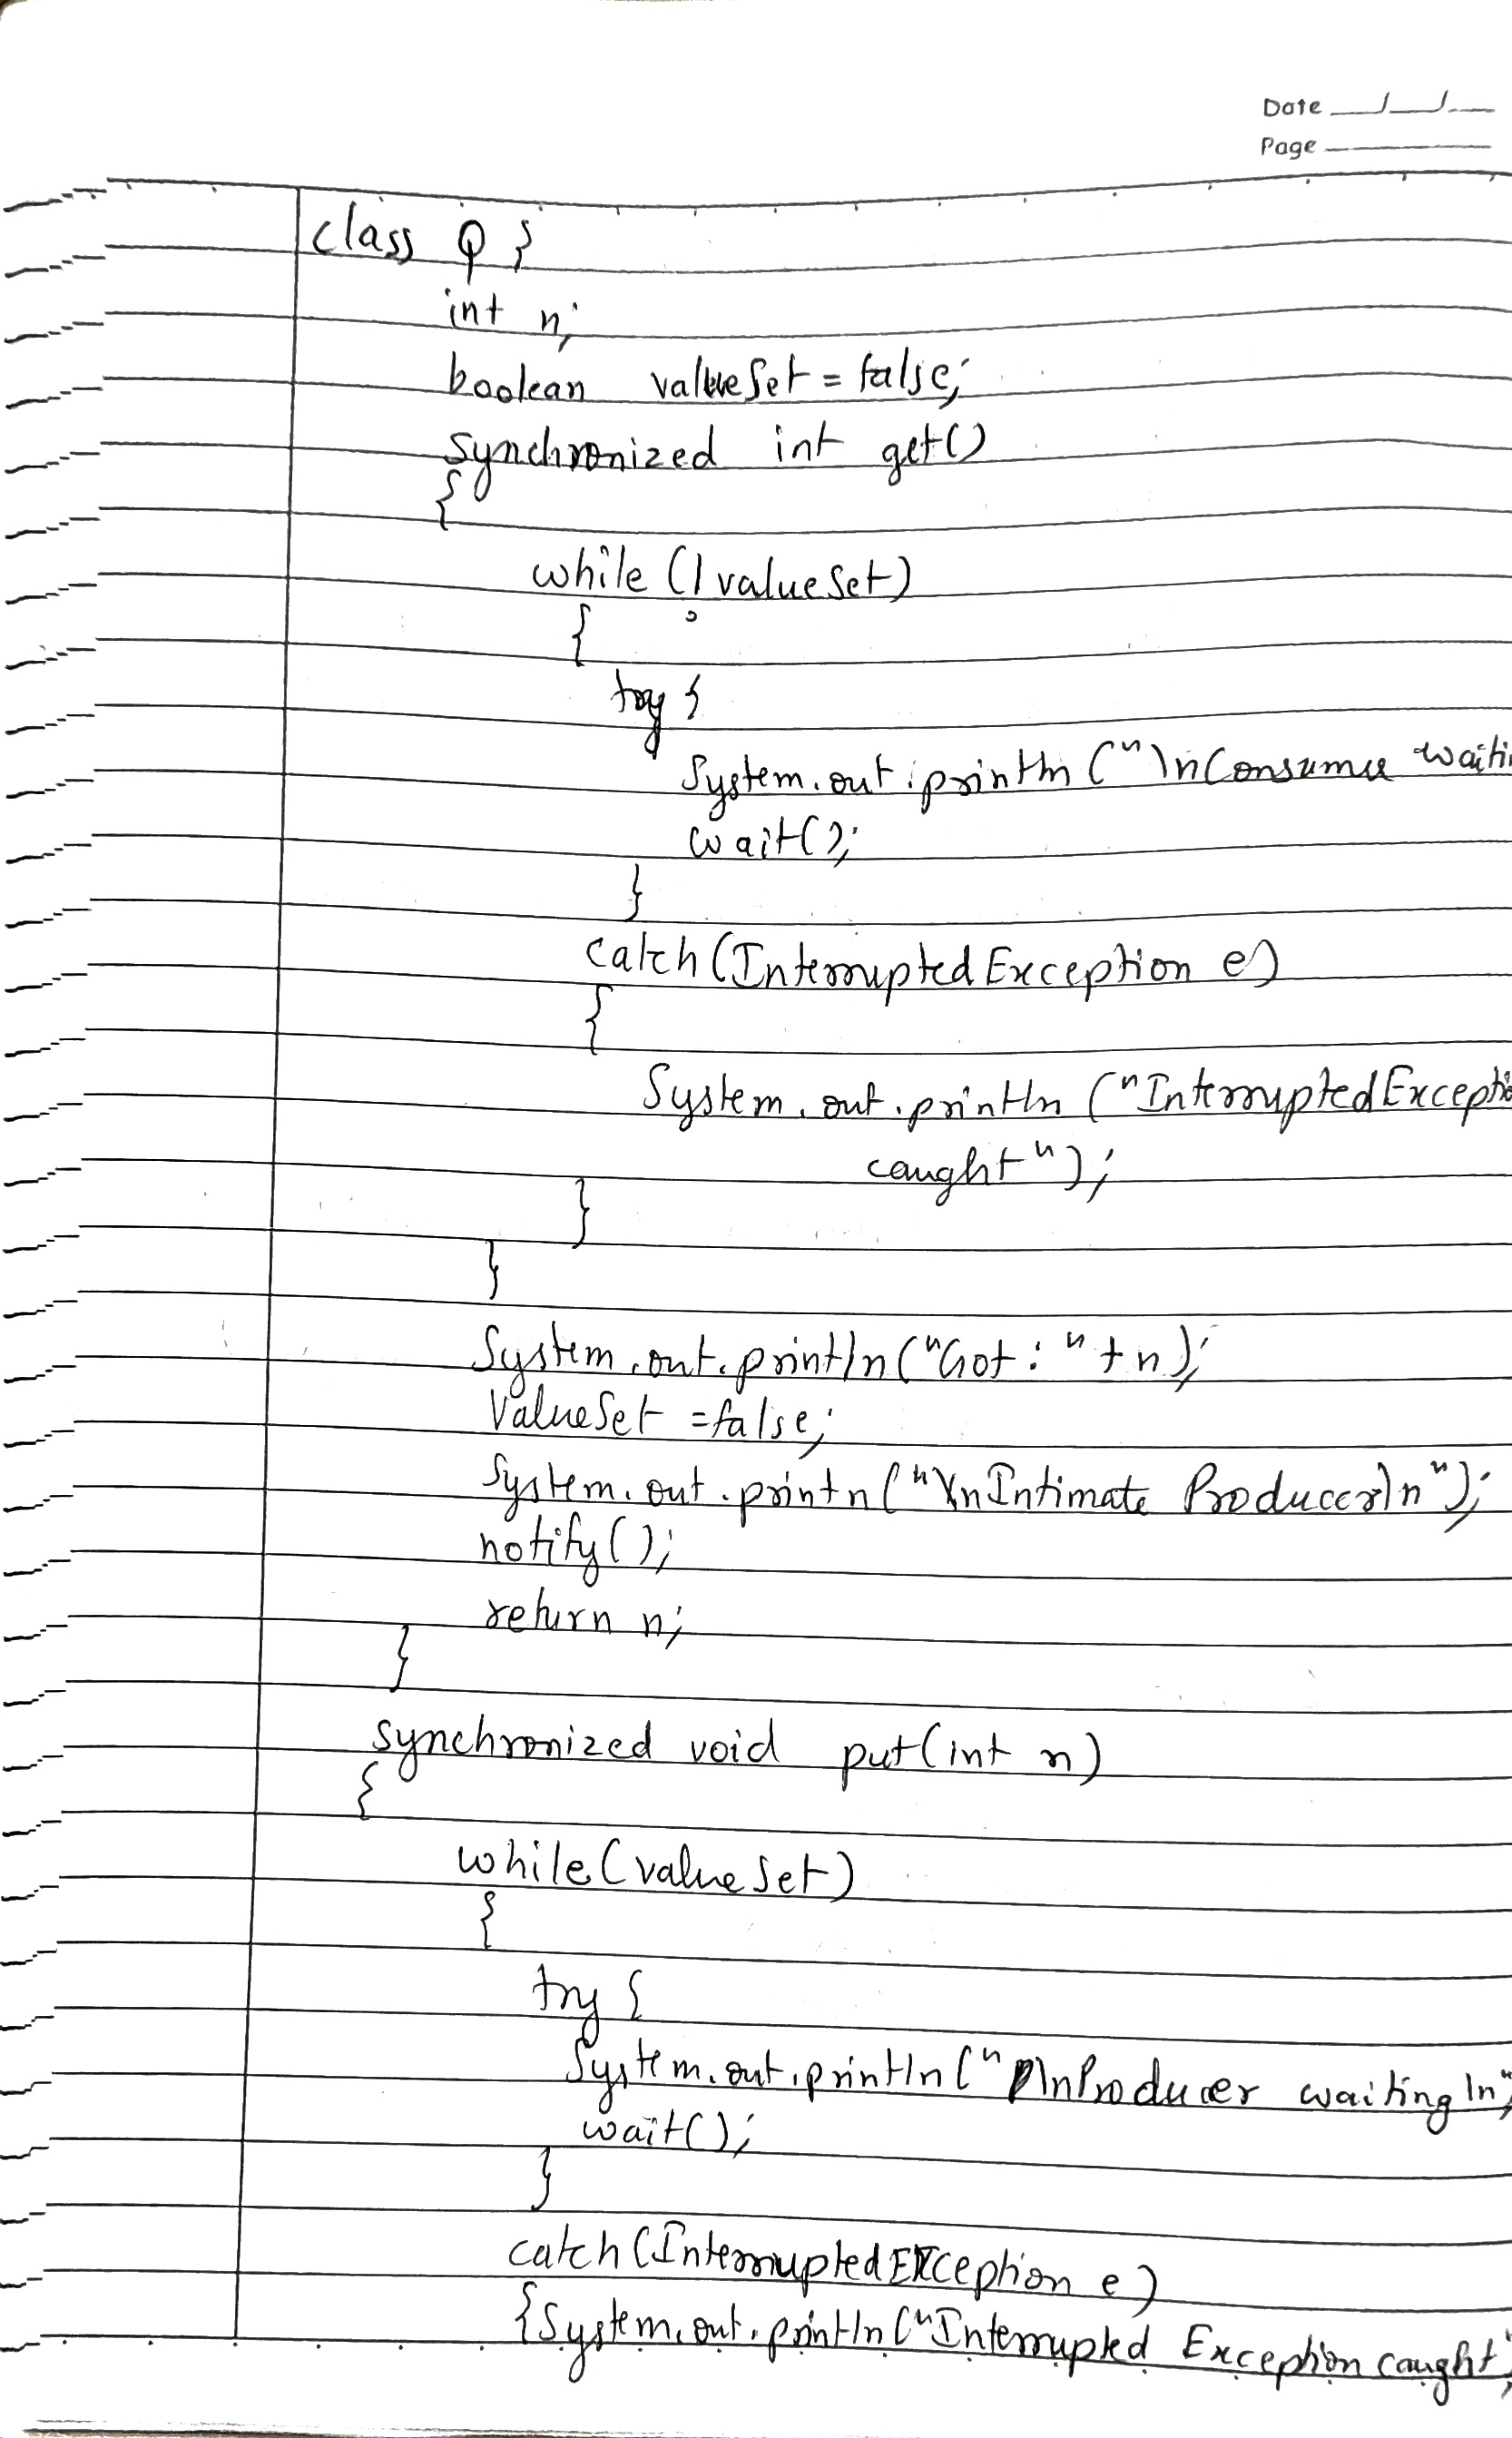 Date
Page
class Q {
int n;
boolean valueSet = false;
synchronized int get()
{
while (!valueSet)
{
try {
System.out.println ("\nConsumer waiti
wait();
}
catch (InterruptedException e)
{
System.out.println ("InterruptedExceptio
caught");
}
}
System.out.println("Got: " + n);
ValueSet = false;
System.out.printn("\nIntimate Producer\n");
notify();
return n;
}
synchronized void put(int n)
{
while(valueSet)
{
try {
System.out.println("\nProducer waiting\n"
wait();
}
catch (InterruptedException e)
{System.out.println("Interrupted Exception caught"